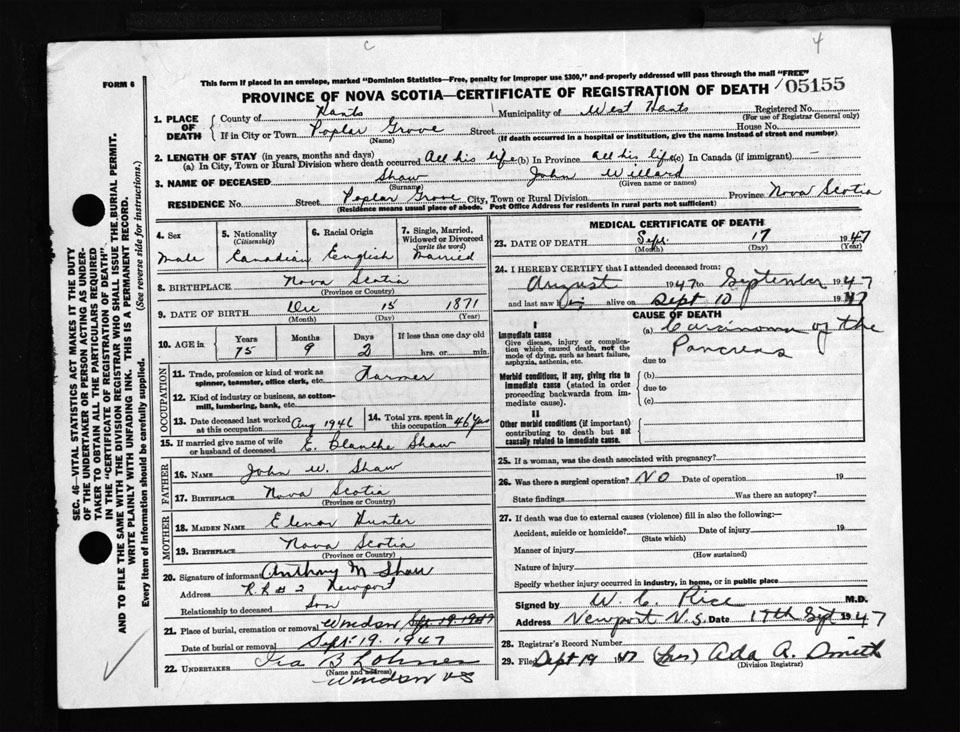 c
4
FORM 6
This form if placed in an envelope, marked "Dominion Statistics—Free, penalty for improper use $300," and properly addressed will pass through the mail "FREE"
PROVINCE OF NOVA SCOTIA—CERTIFICATE OF REGISTRATION OF DEATH 05155
1. PLACE OF DEATH County of Hants Municipality of West Hants Registered No. (For use of Registrar General only)
If in City or Town Poplar Grove (Name) Street House No.
(If death occurred in a hospital or institution, give the name instead of street and number)
2. LENGTH OF STAY (in years, months and days)
(a) In City, Town or Rural Division where death occurred All his life (b) In Province All his life (c) In Canada (if immigrant) —
3. NAME OF DECEASED Shaw (Surname) John Willard (Given name or names)
RESIDENCE No. Street Poplar Grove City, Town or Rural Division Province Nova Scotia
(Residence means usual place of abode. Post Office Address for residents in rural parts not sufficient)
4. Sex Male
5. Nationality (Citizenship) Canadian
6. Racial Origin English
7. Single, Married, Widowed or Divorced (write the word) Married
8. BIRTHPLACE Nova Scotia
(Province or Country)
9. DATE OF BIRTH Dec 15 1871
(Month) (Day) (Year)
10. AGE in Years Months Days If less than one day old
75 9 2 hrs. or min.
OCCUPATION
11. Trade, profession or kind of work as spinner, teamster, office clerk, etc. Farmer
12. Kind of industry or business, as cotton-mill, lumbering, bank, etc.
13. Date deceased last worked at this occupation Aug 1946
14. Total yrs. spent in this occupation 46 yrs
15. If married give name of wife or husband of deceased E. Blanche Shaw
FATHER
16. NAME John W. Shaw
17. BIRTHPLACE Nova Scotia
(Province or Country)
MOTHER
18. MAIDEN NAME Elenor Hunter
19. BIRTHPLACE Nova Scotia
(Province or Country)
20. Signature of informant Anthony M Shaw
Address R.R # 2 Newport
Relationship to deceased Son
21. Place of burial, cremation or removal Windsor Sept. 19. 1947
Date of burial or removal Sept. 19. 1947
22. UNDERTAKER Ira B Lohnes
(Name and address)
Windsor NS
MEDICAL CERTIFICATE OF DEATH
23. DATE OF DEATH Sept. 17 1947
(Month) (Day) (Year)
24. I HEREBY CERTIFY that I attended deceased from:
August 1947 to September 1947
and last saw him alive on Sept 10 1947
CAUSE OF DEATH
I
Immediate cause
Give disease, injury or complication which caused death, not the mode of dying, such as heart failure, asphyxia, asthenia, etc.
(a) Carcinoma of the
Pancreas
due to
Morbid conditions, if any, giving rise to immediate cause (stated in order proceeding backwards from immediate cause).
(b)
due to
(c)
II
Other morbid conditions (if important) contributing to death but not causally related to immediate cause.
25. If a woman, was the death associated with pregnancy?
26. Was there a surgical operation? NO Date of operation 19
State findings Was there an autopsy?
27. If death was due to external causes (violence) fill in also the following:—
Accident, suicide or homicide? (State which) Date of injury 19
Manner of injury
(How sustained)
Nature of injury
Specify whether injury occurred in industry, in home, or in public place
Signed by W. C. Rice M.D.
Address Newport N.S. Date 17th Sept 1947
28. Registrar's Record Number
29. Filed Sept 19 1947 (Mrs) Ada A. Smith
(Division Registrar)
SEC. 46—VITAL STATISTICS ACT MAKES IT THE DUTY
OF THE UNDERTAKER OR PERSON ACTING AS UNDER-
TAKER TO OBTAIN ALL THE PARTICULARS REQUIRED
IN THE "CERTIFICATE OF REGISTRATION OF DEATH" AND TO FILE THE SAME WITH THE DIVISION REGISTRAR WHO SHALL ISSUE THE BURIAL PERMIT.
WRITE PLAINLY WITH UNFADING INK. THIS IS A PERMANENT RECORD.
Every item of information should be carefully supplied. (See reverse side for instructions.)